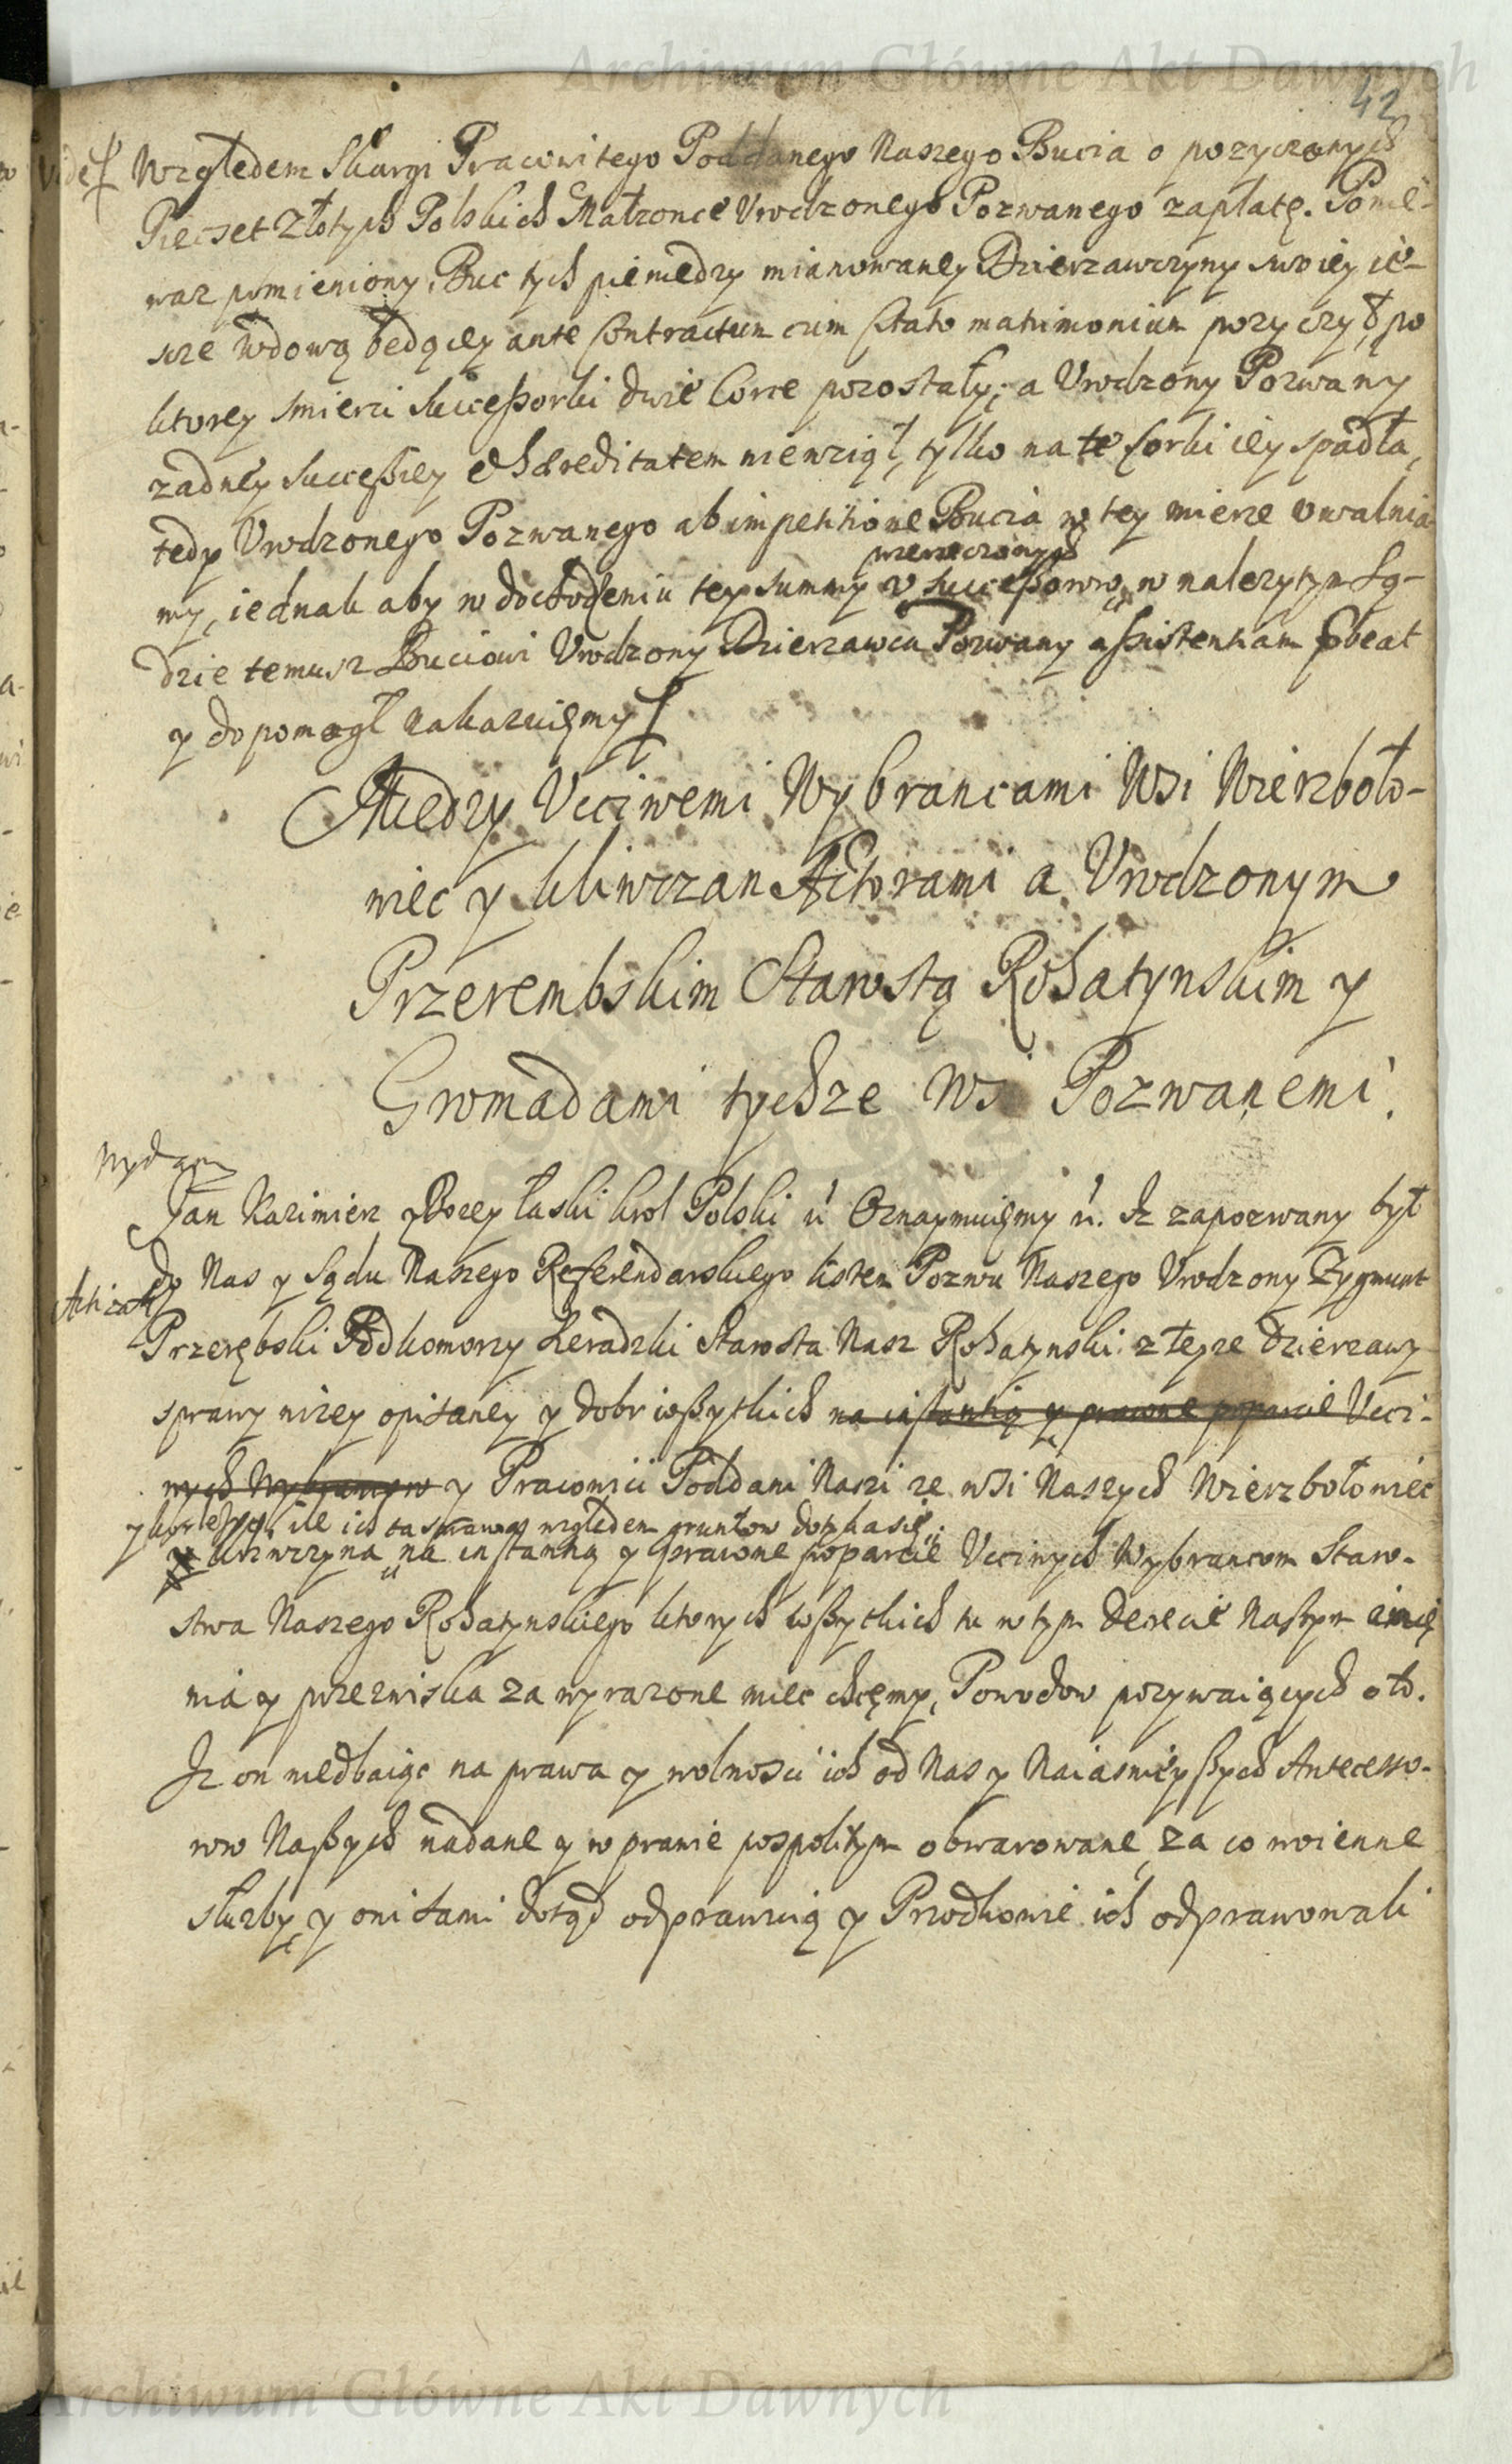 Archiwum Główne Akt Dawnych
42
Względem Skargi Pracowitego Poddanego Naszego Bucia o pozyczonych
Piecset Złotych Polskich Małzonce Vrodzonego Pozwanego zapłatę. Ponie-
waz pomieniony Buc tych pieniedzy mianowaney Dzierzawczyny swoiey ie-
scze wdową będącey ante contractum cum (Stato matrimonium pozyczył, po
ktorey smierci Successorki dwie Corce pozostały, a Vrodzony Pozwany
zadney Successiey et haereditatem niewziął, tylko na te Corki iey spadła,
tedy Vrodzonego Pozwanego ab impetitione Bucia w tey mierze vwalnia-
przerzeczonych
my, iednak aby w dochodzeniu tey summy v Successorow, w nalezytym Są-
dzie temusz Buciowi Vrodzony Dzierzawca Pozwany assistentiam praebeat
y dopomogł nakazuięmy
Między Vcciwemi Wybrancami Wsi Wierzboło-
wiec y Kliwczan Actorami a Vrodzonym
Przerembskim Starostą Rohatynskim y
Gromadami tychze Wsi Pozwanemi.
Wydany
Jan Kazimierz z Bozey łaski Krol Polski Oznaymuięmy Jz zapozwany był
do Nas y Sądu Naszego Referendarskiego listem Pozwu Naszego Vrodzony Zygmunt
Przerębski Podkomorzy Sieradzki Starosta Nasz Rohatynski z teyze dzierzawy
sprawy nizey opisaney y dobr wszytkich na instantią y prawne poparcie Vcci-
wych Wybrancow y Pracowici Poddani Naszi ze wsi Naszych Wierzbołowiec
ile ich ta sprawa względem gruntow dotyka się
na instantią y prawne poparcie Vcciwych Wybrancow Staro-
stwa Naszego Rohatynskiego ktorych wszytkich tu w tym Decrecie Naszym imię
nia y przezwiska za wyrazone miec chcęmy, Powodow pozywaiących o to.
Jz on niedbaiąc na prawa y wolnosci ich od Nas y Naiasnieyszych Antecesso-
row Naszych nadane y w prawie pospolitym obwarowane, za co woienne
słuzby y oni sami dotąd odprawuią y Przodkowie ich odprawowali
Archiwum Główne Akt Dawnych